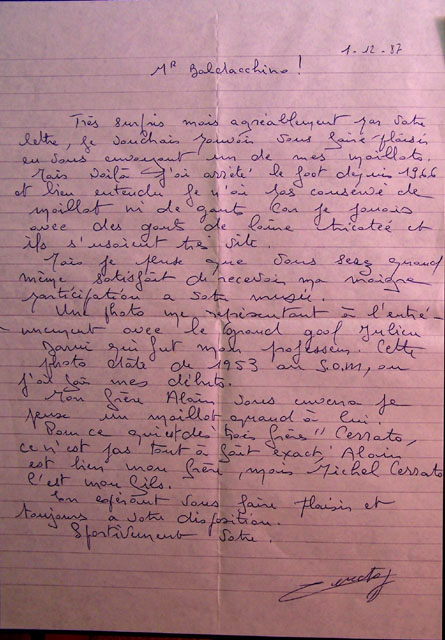 1-12-87
Mr Baldacchino!
Très surpris mais agréablement par votre
lettre, je voudrais pouvoir vous faire plaisir
en vous envoyant un de mes maillots.
Mais voilà j'ai arrêté le foot depuis 1966
et bien entendu je n'ai pas conservé de
maillot ni de gants car je jouais
avec des gants de laine tricotée et
ils s'usaient très vite.
Mais je pense que vous serez quand
même satisfait de recevoir ma maigre
participation a votre musée.
Un photo me représentant à l'entrai-
nement avec le grand goal Julien
Darui qui fut mon professeur. Cette
photo date de 1953 au S.O.M, ou
j'ai fait mes débuts.
Mon frère Alain vous enverra je
pense un maillot quand à lui.
Pour ce qui est des trois frères" Cerrato,
ce n'est pas tout à fait exact, Alain
est bien mon frère, mais Michel Cerrato
c'est mon fils.
En espérant vous faire plaisir et
toujours a votre disposition.
Sportivement votre.